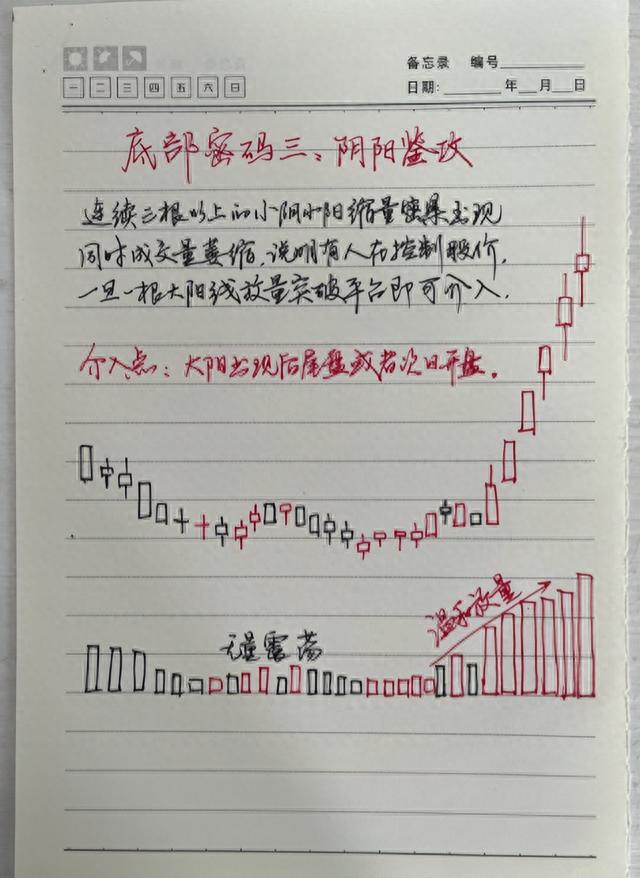 备忘录 编号
一 二 三 四 五 六 日
日期: 年 月 日
底部密码三：阴阳鉴攻
连续三根以上的小阴小阳缩量密集出现
同时成交量萎缩，说明有人在控制股价，
一旦一根大阳线放量突破平台即可介入.
介入点：大阳出现后尾盘或者次日开盘。
无量震荡
温和放量